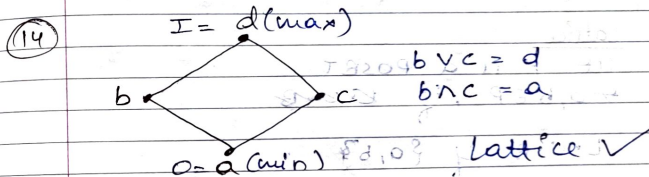 14
I = d (max)
b v c = d
b ∧ c = a
b
c
0 = a (min)
Lattice ✓